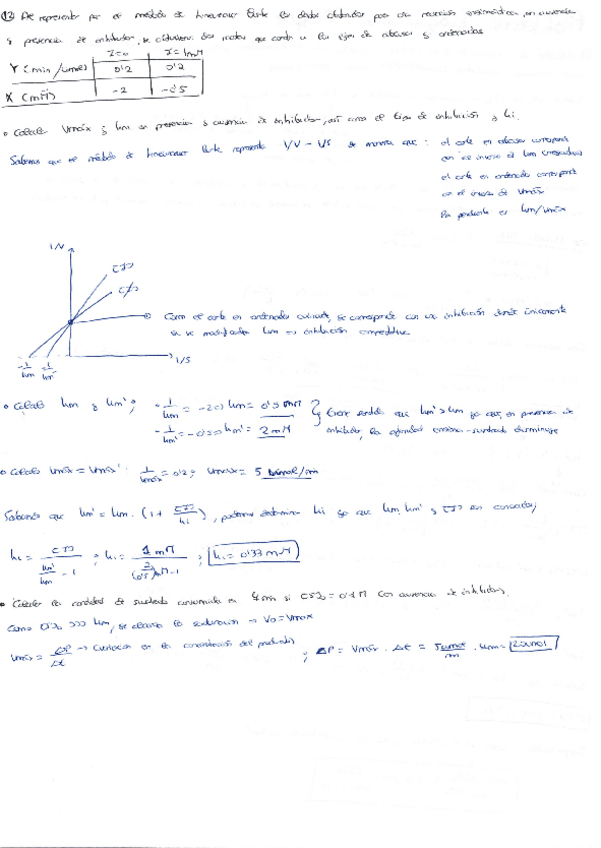 12) Al representar por el método de Lineweaver Burk los datos obtenidos para una reacción enzimática, en ausencia
y presencia de inhibidor, se obtuvieron dos rectas que cortan a los ejes de abcisas y ordenadas
I=0 I=1mM
Y (min/umol) 0'2 0'2
X (mM) -2 -0'5
• Calcula Vmáx y km en presencia y ausencia de inhibidor, así como el tipo de inhibición y ki.
Sabemos que el método de Lineweaver Burk representa 1/V - 1/S de manera que: el corte en abcisas corresponde
con el inverso de km
el corte en ordenadas corresponde
con el inverso de Vmáx
la pendiente es km/Vmáx
1/V
-1/km -1/km' 1/S
Como el corte en ordenadas se corresponde con una inhibición donde únicamente
se ve modificada km → inhibición competitiva.
• Calcula km y km'; -1/km = -2 → km = 0'5 mM
-1/km' = -0'5 → km' = 2 mM
Tiene sentido que km' > km ya que, en presencia de
inhibidor, la afinidad enzima-sustrato disminuye
• Calcula Vmáx = Vmáx': 1/Vmáx = 0'2; Vmáx = 5 umol/min
Sabiendo que km' = km · (1 + [I]/ki), podemos determinar ki ya que km, km' y [I] son conocidos;
ki = [I] / (km'/km - 1); ki = 1 mM / (2/0'5 - 1); ki = 0'33 mM
• Calcular la cantidad de sustrato consumida en 4 min si [S]0 = 0'1 M con ausencia de inhibidor.
Como >>> km, se alcanza la saturación → V0 = Vmax
Vmáx = ΔP/Δt → en la concentración del producto; ΔP = Vmáx · Δt = 5 umol/m · 4m = 20 umol